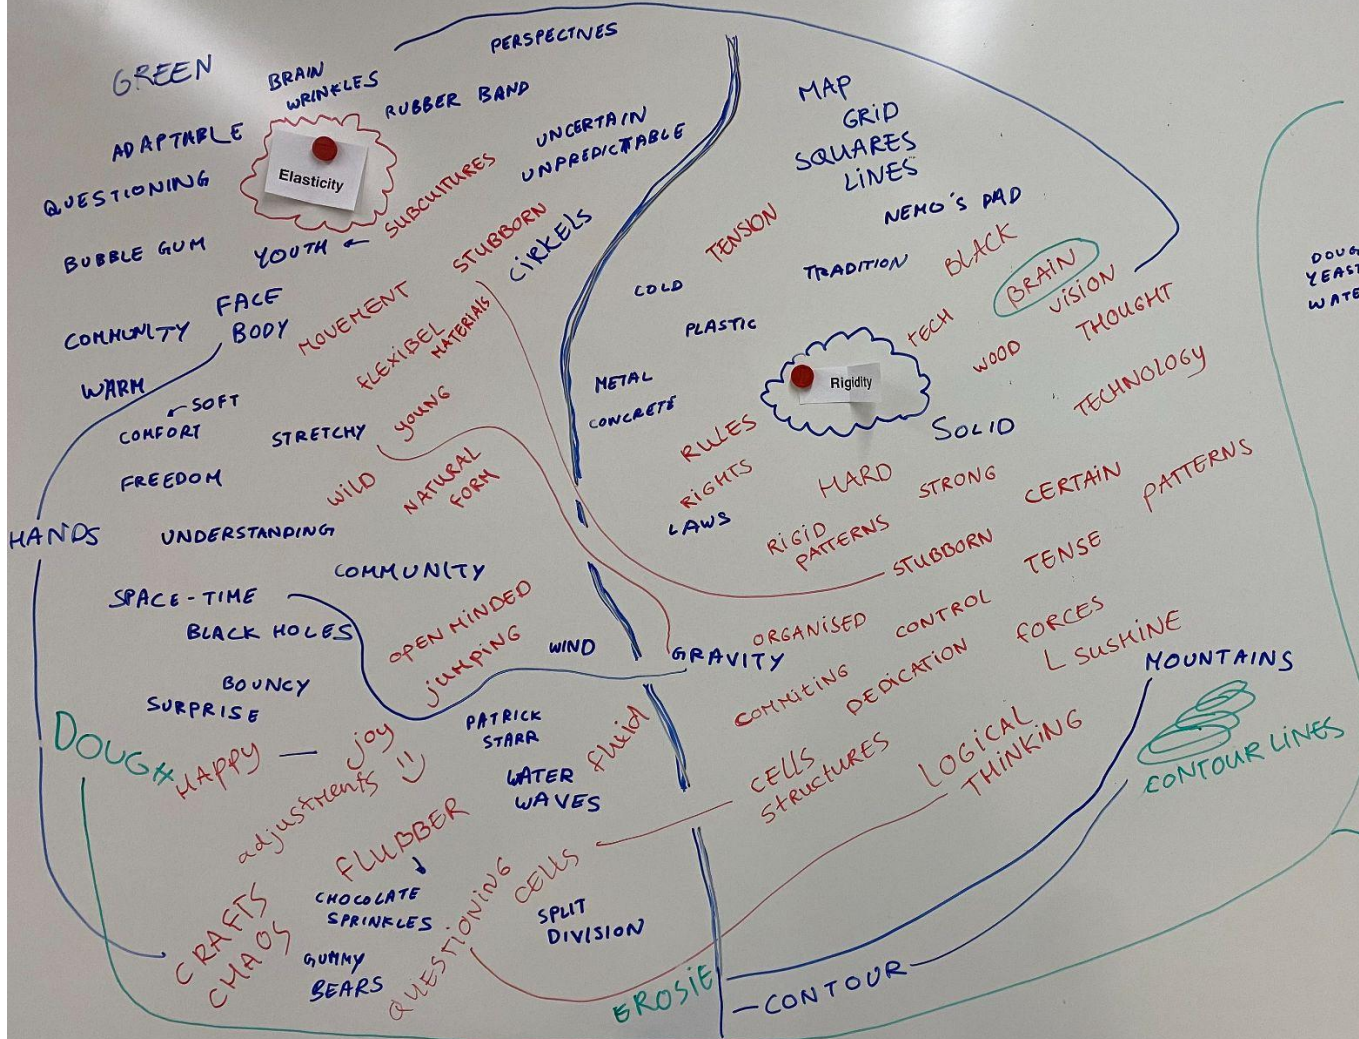 GREEN
BRAIN
WRINKLES
PERSPECTIVES
RUBBER BAND
ADAPTABLE
Elasticity
UNCERTAIN
UNPREDICTABLE
QUESTIONING
SUBCULTURES
BUBBLE GUM
YOUTH
STUBBORN
CIRKELS
FACE
BODY
MOVEMENT
COMMUNITY
FLEXIBEL
MATERIALS
WARM
SOFT
COMFORT
STRETCHY
YOUNG
FREEDOM
WILD
NATURAL
FORM
HANDS
UNDERSTANDING
COMMUNITY
SPACE-TIME
BLACK HOLES
OPEN MINDED
JUMPING
WIND
BOUNCY
SURPRISE
DOUGH
HAPPY
joy
PATRICK
STARR
fluid
adjustments
WATER
WAVES
FLUBBER
CHOCOLATE
SPRINKLES
CRAFTS
CHAOS
GUMMY
BEARS
QUESTIONING
CELLS
SPLIT
DIVISION
EROSIE
MAP
GRID
SQUARES
LINES
NEMO'S PAD
TENSION
TRADITION
BLACK
BRAIN
VISION
THOUGHT
COLD
PLASTIC
TECH
WOOD
METAL
CONCRETE
Rigidity
RULES
SOLID
TECHNOLOGY
RIGHTS
LAWS
HARD
STRONG
CERTAIN
PATTERNS
RIGID
PATTERNS
STUBBORN
TENSE
GRAVITY
ORGANISED
CONTROL
FORCES
L SUSHINE
COMMITING
DEDICATION
MOUNTAINS
CELLS
STRUCTURES
LOGICAL
THINKING
CONTOUR LINES
CONTOUR
DOUG
YEAST
WATE